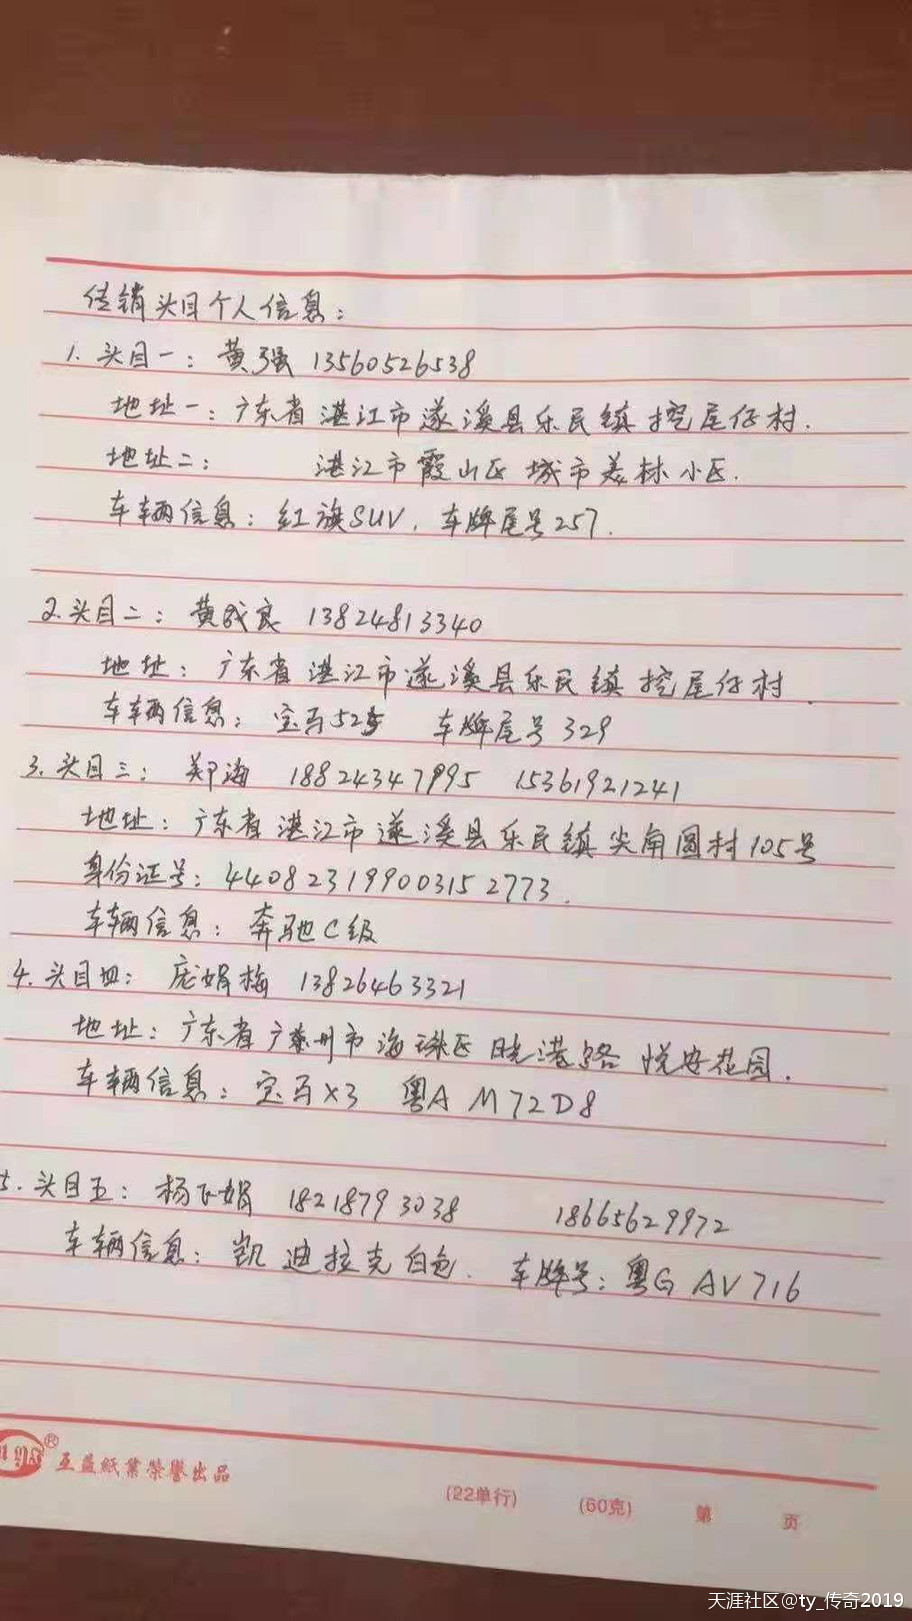 传销头目个人信息:
1. 头目一: 黄强 13560526538
地址一: 广东省湛江市遂溪县乐民镇挖尾仔村.
地址二: 湛江市霞山区城市美林小区.
车辆信息: 红旗SUV. 车牌尾号257.
2. 头目二: 黄 良 13824813340
地址: 广东省湛江市遂溪县乐民镇挖尾仔村.
车辆信息: 宝马525 车牌尾号329
3. 头目三: 郑海 18824347995 15361921241
地址: 广东省湛江市遂溪县乐民镇尖角圆村105号
身份证号: 440823199003152773.
车辆信息: 奔驰C级
4. 头目四: 庞娟梅 13826463321
地址: 广东省广州市海珠区晓港路 悦安花园.
车辆信息: 宝马X3 粤A M72D8
5. 头目五: 杨 娟 18218793038 18665629972
车辆信息: 凯迪拉克白色. 车牌号: 粤G AV716
互益紙業榮譽出品
(22单行) (60克) 第 页
天涯社区@ty_传奇2019